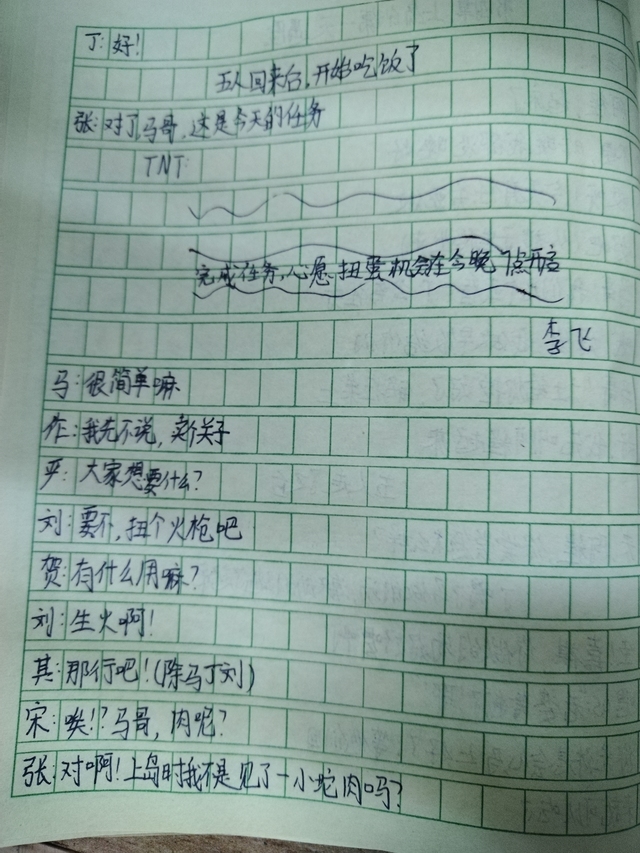 丁:好!
五人回来后,开始吃饭了
张:对了,马哥,这是今天的任务
TNT:
完成任务,心愿扭蛋机会在今晚7点开启
李飞
马:很简单嘛
作:我先不说,卖个关子
严:大家想要什么?
刘:要不,扭个火枪吧
贺:有什么用嘛?
刘:生火啊!
其:那行吧!(除马丁刘)
宋:唉!?马哥,肉呢?
张:对啊!上岛时我不是见了一小蛇肉吗?